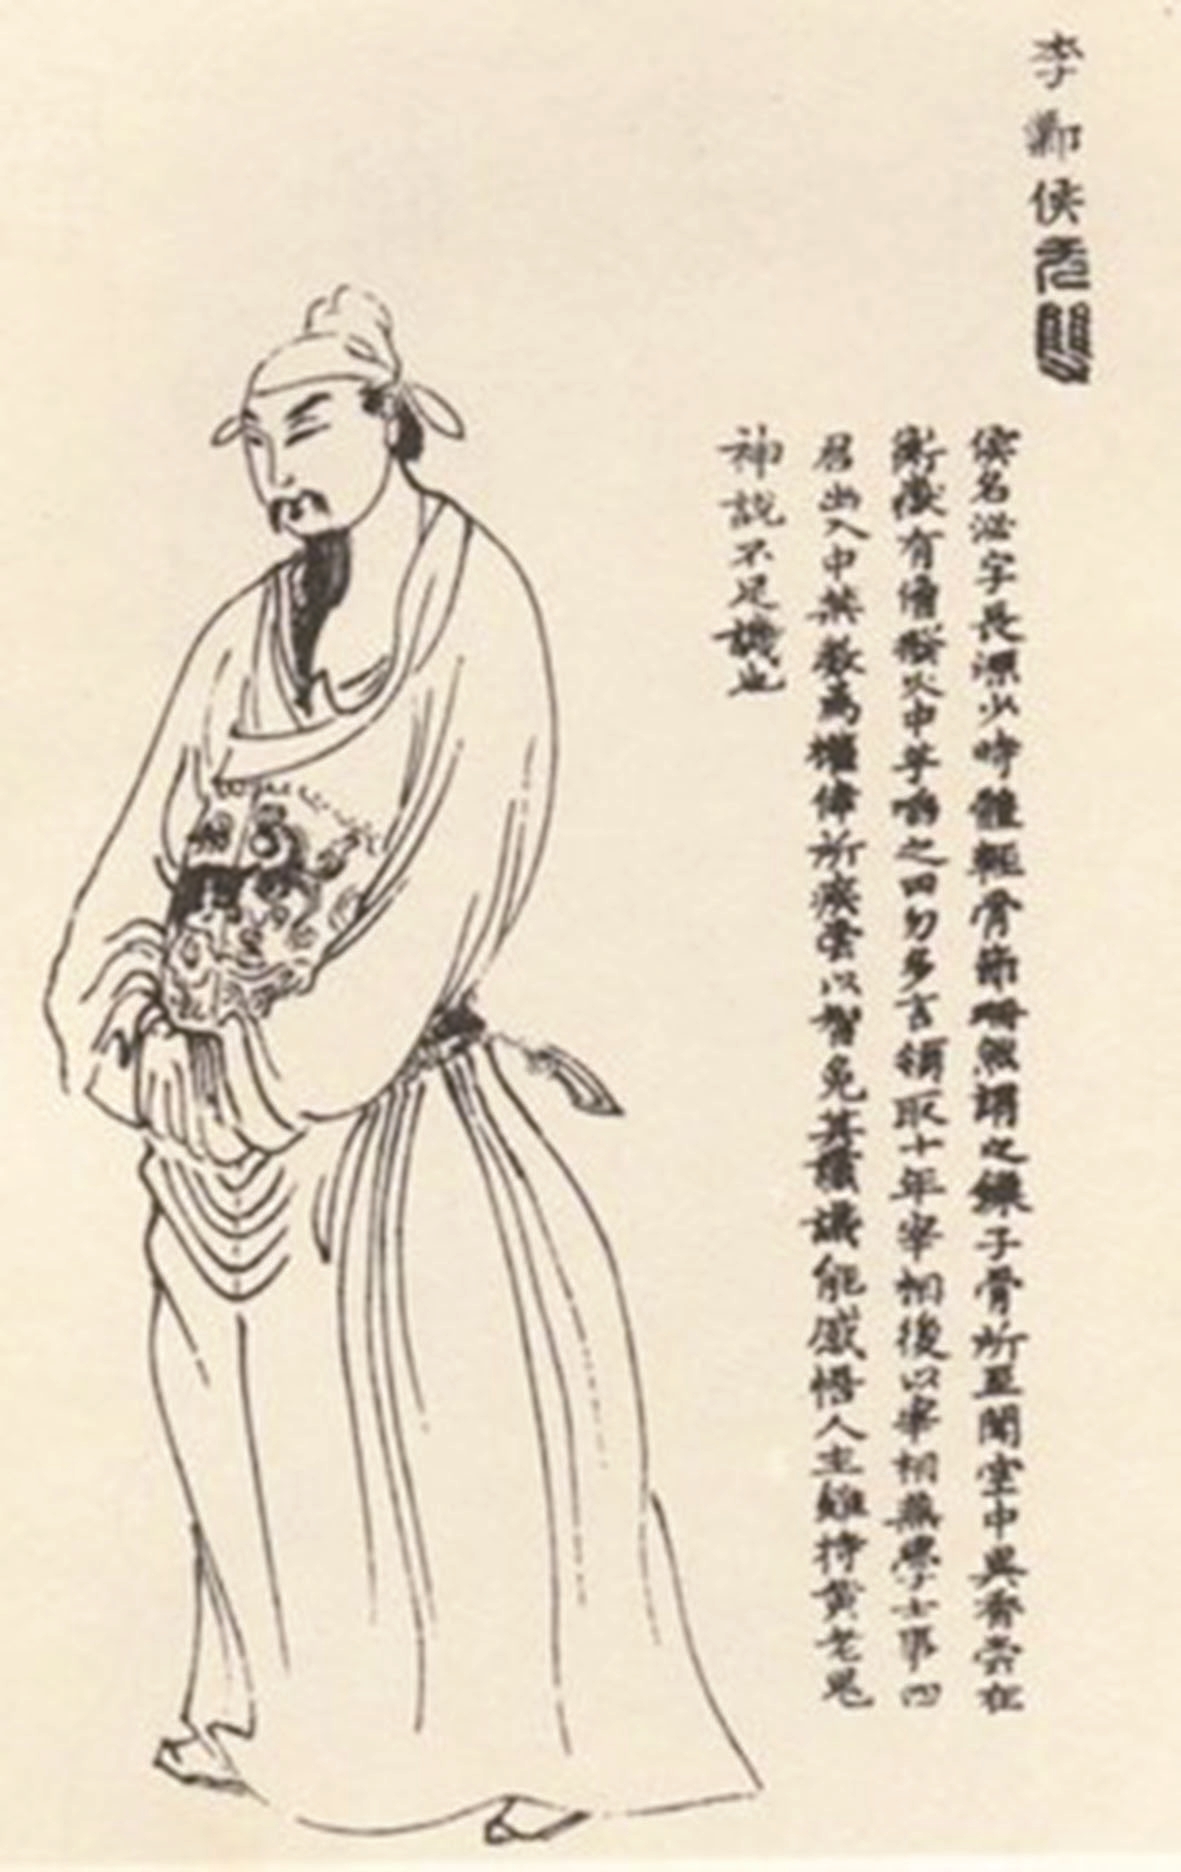 李鄴侯
侯名泌字長源少時體輕骨節珊然謂之鎖子骨所至聞空中異香嘗在
衡嶽有僧撥火中芋啗之曰勿多言領取十年宰相後以宰相兼學士事四
君出入中禁數為權倖所疾常以智免其讜議能感悟人主雖持黃老鬼
神說不足譏也